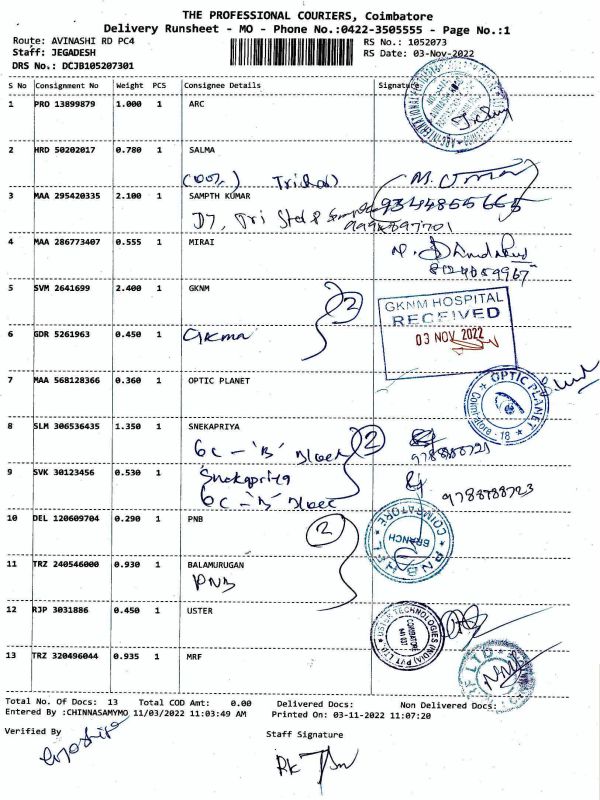 THE PROFESSIONAL COURIERS, Coimbatore
Delivery Runsheet - MO - Phone No.:0422-3505555 - Page No.:1
Route: AVINASHI RD PC4 RS No.: 1052073
Staff: JEGADESH RS Date: 03-Nov-2022
DRS No.: DCJB105207301
S No Consignment No Weight PCS Consignee Details Signature
1 PRO 13899879 1.000 1 ARC
2 HRD 50202017 0.780 1 SALMA
3 MAA 295420335 2.100 1 SAMPTH KUMAR
9344855665
4 MAA 286773407 0.555 1 MIRAI
8124059967
5 SVM 2641699 2.400 1 GKNM
2
GKNM HOSPITAL
RECEIVED
03 NOV 2022
6 GDR 5261963 0.450 1
7 MAA 568128366 0.360 1 OPTIC PLANET
OPTIC PLANET
Coimbatore - 18
8 SLM 306536435 1.350 1 SNEKAPRIYA
6C - 'B' Block
2
9 SVK 30123456 0.530 1 Snekapriya
6C - 'B' Block
9788788723
10 DEL 120609704 0.290 1 PNB
2
COIMBATORE
BRANCH
PNB HFL
11 TRZ 240546000 0.930 1 BALAMURUGAN
PNB
12 RJP 3031886 0.450 1 USTER
USTER TECHNOLOGIES (INDIA) PVT. LTD.
COIMBATORE
641 037
13 TRZ 320496044 0.935 1 MRF
Total No. Of Docs: 13 Total COD Amt: 0.00 Delivered Docs: Non Delivered Docs:
Entered By :CHINNASAMYMO 11/03/2022 11:03:49 AM Printed On: 03-11-2022 11:07:20
Verified By Staff Signature